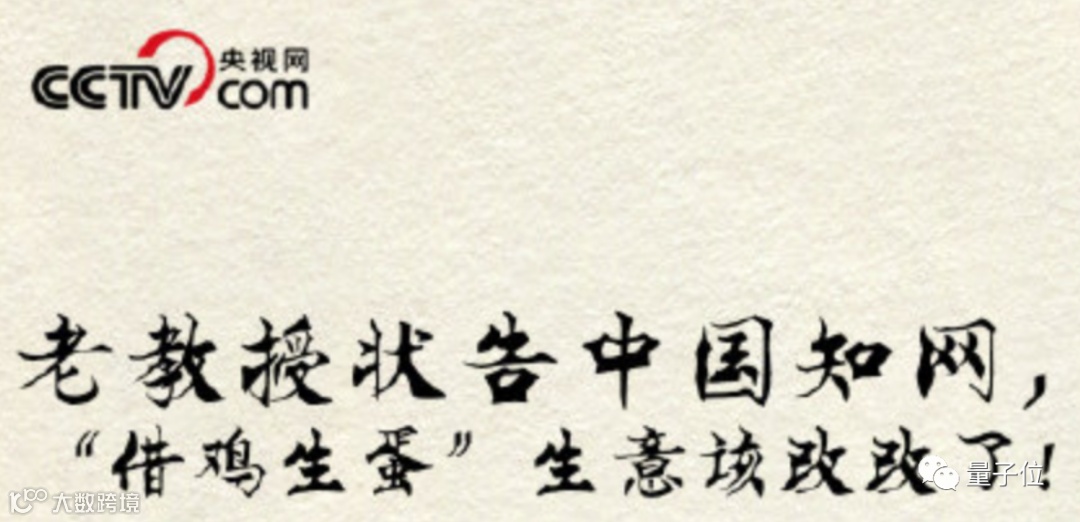 央视网
CCTV com
老教授状告中国知网，
“借鸡生蛋”生意该改改了!
量子位
100 大数跨境